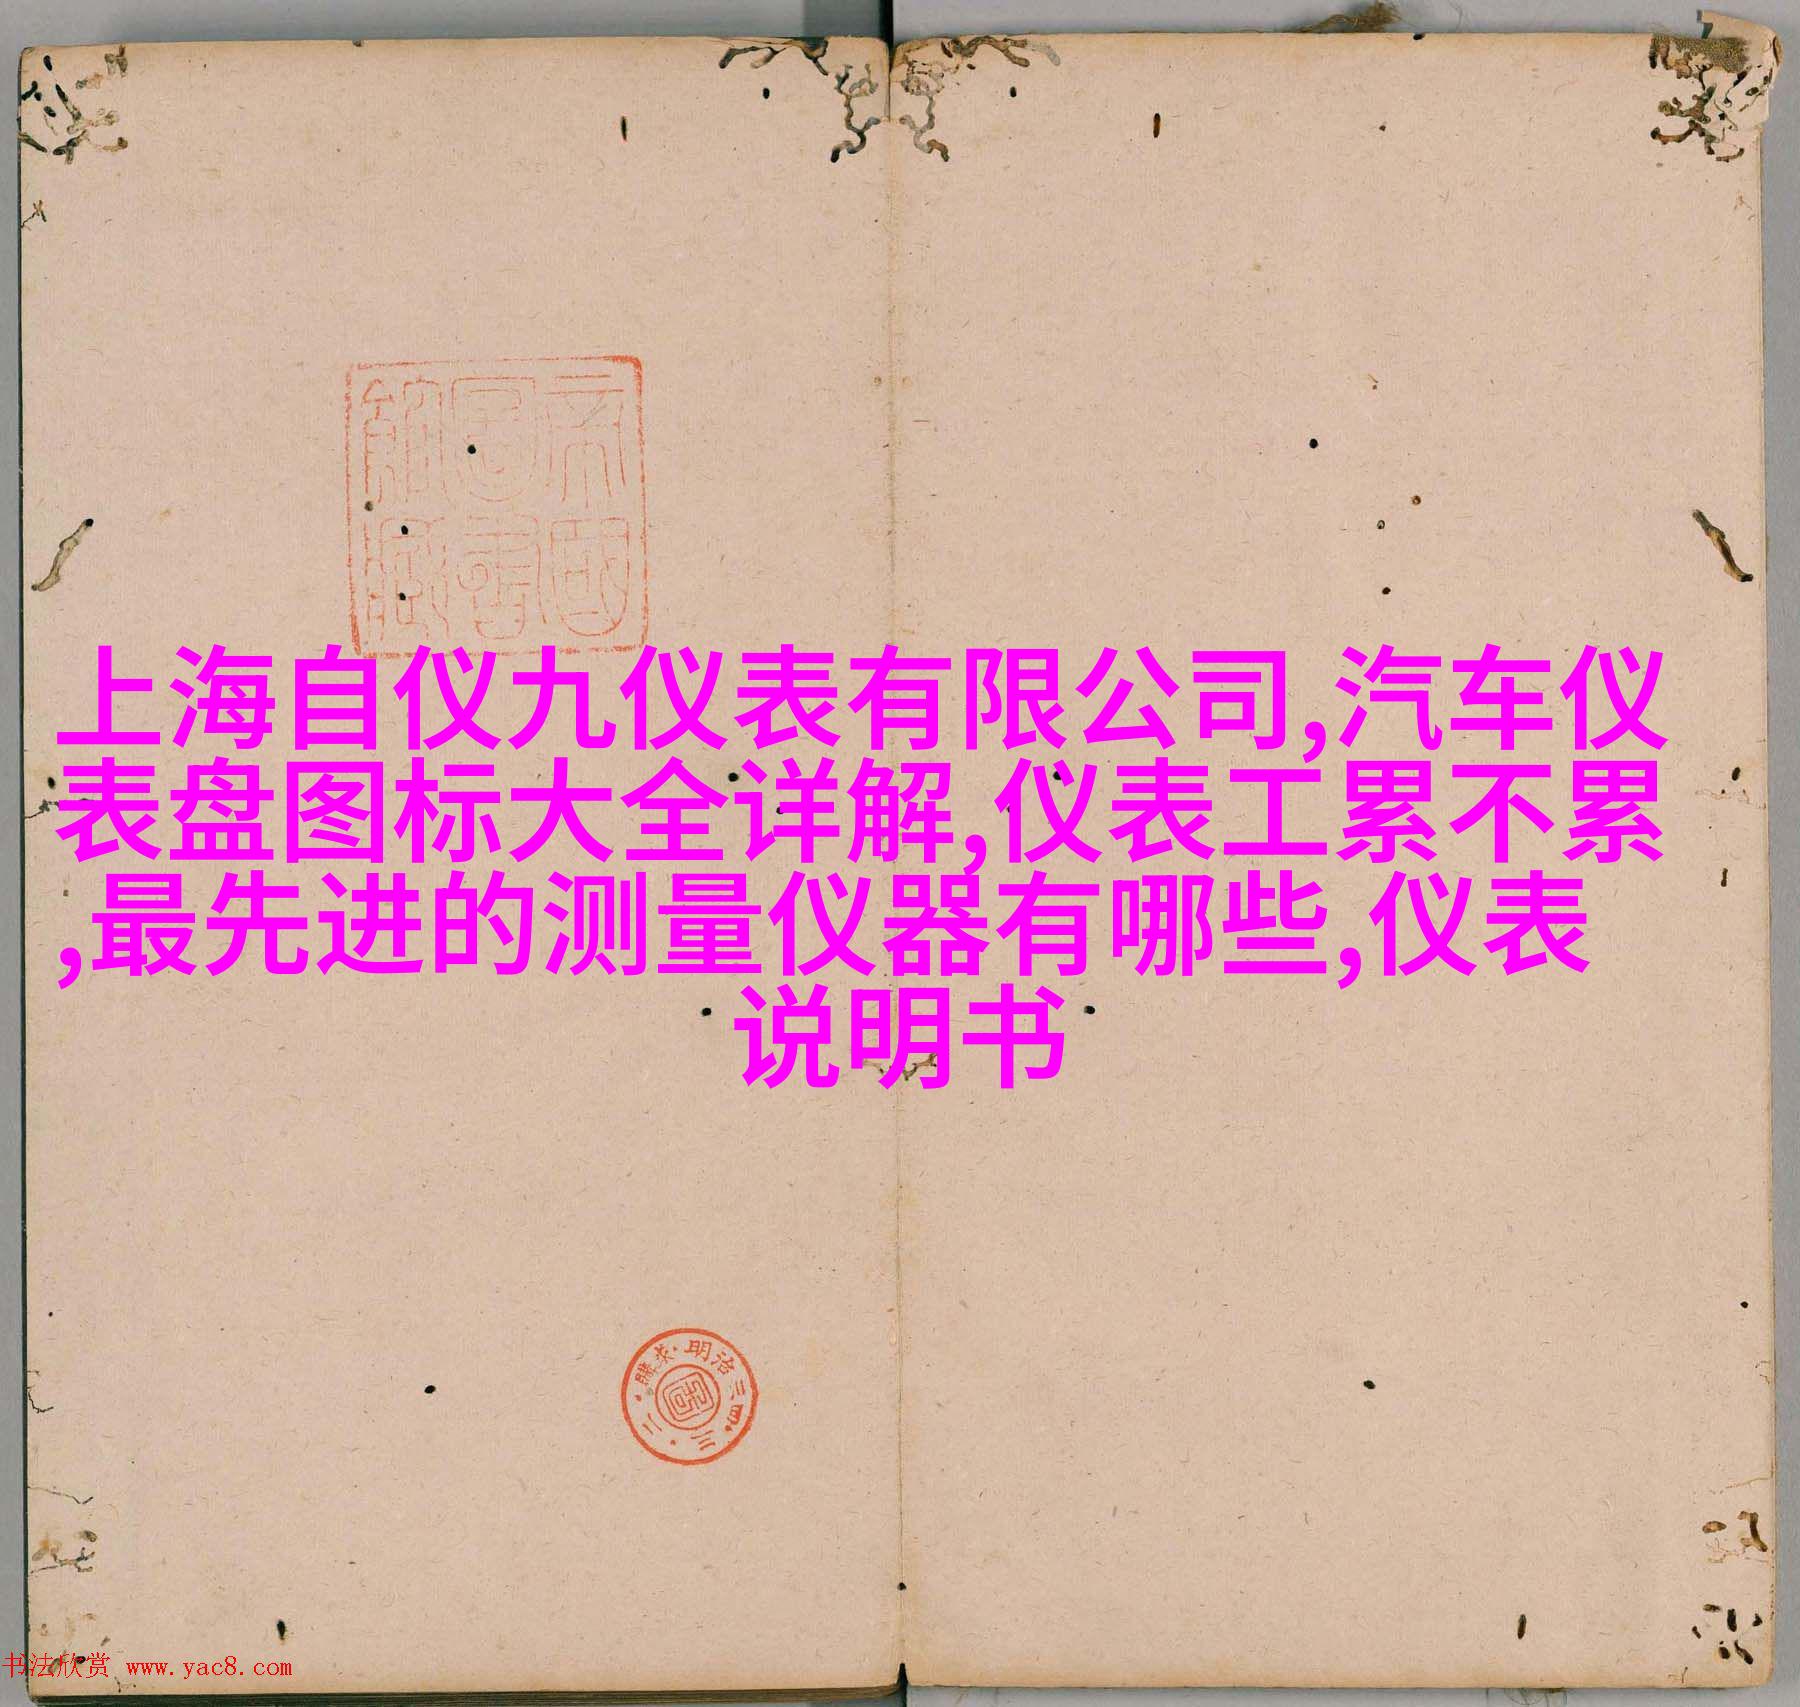 帝国
图书
馆藏
上海自仪九仪表有限公司,汽车仪
表盘图标大全详解,仪表工累不累
,最先进的测量仪器有哪些,仪表
说明书
明治三四·三·二·購求·
书法欣赏 www.yac8.com